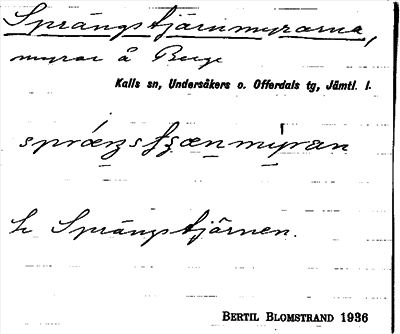 Sprängstjärnmyrarna,
myrar å Berge
Kalls sn, Undersåkers o. Offerdals tg, Jämtl. l.
h Sprängstjärnen.
BERTIL BLOMSTRAND 1936